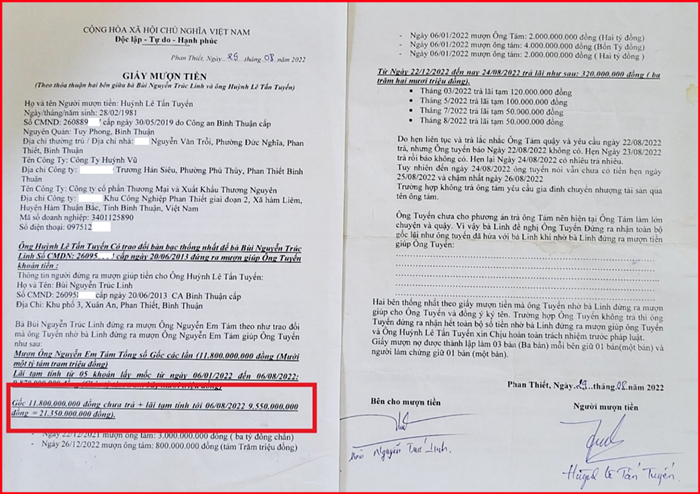 CỘNG HÒA XÃ HỘI CHỦ NGHĨA VIỆT NAM
Độc lập - Tự do - Hạnh phúc
Phan Thiết, Ngày..25..tháng.08..năm 2022
GIẤY MƯỢN TIỀN
(Theo thỏa thuận hai bên giữa bà Bùi Nguyễn Trúc Linh và ông Huỳnh Lê Tấn Tuyến)
Họ và tên Người mượn tiền: Huỳnh Lê Tấn Tuyến
Ngày/tháng/năm sinh: 28/02/1981
Số CMND: 260889 cấp ngày 30/05/2019 do Công an Bình Thuận cấp
Nguyên Quán: Tuy Phong, Bình Thuận
Địa chỉ thường trú / Địa chỉ nhà: Nguyễn Văn Trỗi, Phường Đức Nghĩa, Phan
Thiết, Bình Thuận
Tên Công Ty: Công Ty Huỳnh Vũ
Địa chỉ Công ty: Trương Hán Siêu, Phường Phú Thủy, Phan Thiết Bình
Thuận
Tên Công ty: Công ty cổ phần Thương Mại và Xuất Khẩu Thương Nguyên
Địa chỉ Công ty: Khu Công Nghiệp Phan Thiết giai đoạn 2, Xã hàm Liêm,
Huyện Hàm Thuận Bắc, Tỉnh Bình Thuận, Việt Nam
Mã số doanh nghiệp: 3401125890
Số điện thoại: 097512
Ông Huỳnh Lê Tấn Tuyến Có trao đổi bàn bạc thống nhất để bà Bùi Nguyễn Trúc
Linh Số CMDN: 26095 cấp ngày 20/06/2013 đứng ra mượn giúp Ông Tuyến
khoản tiền :
Thông tin người đứng ra mượn giúp tiền cho Ông Huỳnh Lê Tấn Tuyến:
Họ và Tên: Bùi Nguyễn Trúc Linh
Số CMND: 26095 cấp ngày 20/06/2013 CA Bình Thuận cấp
Địa Chỉ: Khu phố 3, Xuân An, Phan Thiết, Bình Thuận
Bà Bùi Nguyễn Trúc Linh đứng ra mượn Ông Nguyễn Em Tám theo như trao đổi
mà ông Tuyến nhờ bà Linh đứng ra mượn tiền Ông Nguyễn Em Tám giúp Ông Tuyến
như sau:
Mượn Ông Nguyễn Em Tám Tổng số Gốc các lần (11.800.000.000 đồng (Mười
một tỷ tám trăm triệu đồng)
Lãi tạm tính từ 05 khoản lấy mốc từ ngày 06/01/2022 đến 06/08/2022:
Gốc 11.800.000.000 đồng chưa trả + lãi tạm tính tới 06/08/2022 9.550.000.000
đồng = 21.350.000.000 đồng).
- Ngày 22/12/2021 mượn ông tám: 3.000.000.000 đồng ( ba tỷ đồng chẵn)
- Ngày 26/12/2022 mượn ông tám: 800.000.000 đồng (tám Trăm triệu đồng)
- Ngày 06/01/2022 mượn Ông Tám: 2.000.000.000 đồng (Hai tỷ đồng)
- Ngày 06/01/2022 mượn ông tám: 4.000.000.000 đồng (Bốn Tỷ đồng)
- Ngày 06/01/2022 mượn ông tám: 2.000.000.000 đồng ( Hai tỷ đồng)
Từ Ngày 22/12/2022 đến nay 24/08/2022 trả lãi như sau: 320.000.000 đồng ( ba
trăm hai mươi triệu đồng).
• Tháng 03/2022 trả lãi tạm 120.000.000 đồng
• Tháng 5/2022 trả lãi tạm 100.000.000 đồng
• Tháng 7/2022 trả lãi tạm 50.000.000 đồng
• Tháng 8/2022 trả lãi tạm 50.000.000 đồng
Do hẹn liên tục và trả lắc nhắc Ông Tám quậy và yêu cầu ngày 22/08/2022
trả, nhưng Ông tuyến báo Ngày 22/08/2022 không có. Hẹn Ngày 23/08/2022
trả rồi báo không có. Hẹn lại Ngày 24/08/2022 có nhiêu trả nhiêu.
Tuy nhiên đến ngày 24/08/2022 ông tuyến nói vẫn chưa có tiền hẹn ngày
25/08/2022 và chậm nhất ngày 26/08/2022
Trường hợp không trả ông tám yêu cầu gia đình chuyển nhượng tài sản qua
tên ông tám.
Ông Tuyến chưa cho phương án trả ông Tám nên hiện tại Ông Tám làm lớn
chuyện và quậy. Vì vậy bà Linh đề nghị Ông Tuyến Đứng ra nhận toàn bộ
gốc lãi như ông tuyến đã hứa với bà Linh khi nhờ bà Linh đứng ra mượn tiền
giúp Ông Tuyến:
Hai bên thống nhất theo giấy mượn tiền mà ông Tuyến nhờ bà Linh đứng ra mượn
giúp cho Ông Tuyến và đồng ý ký tên. Trường hợp Ông Tuyến không trả thì ông
Tuyến đứng ra nhận hết toàn bộ số tiền nhờ bà Linh đứng ra mượn giúp ông Tuyến
và Ông Huỳnh Lê Tấn Tuyến xin Chịu hoàn toàn trách nhiệm trước pháp luật.
Giấy mượn nợ được thành lập làm 03 bản (Ba bản) mỗi bên giữ 01 bản(một bản) và
người làm chứng giữ 01 bản (một bản).
Phan Thiết, Ngày...25..tháng.08..năm 2022
Bên cho mượn tiền
Người mượn tiền
Bùi Nguyễn Trúc Linh.
Huỳnh Lê Tấn Tuyến